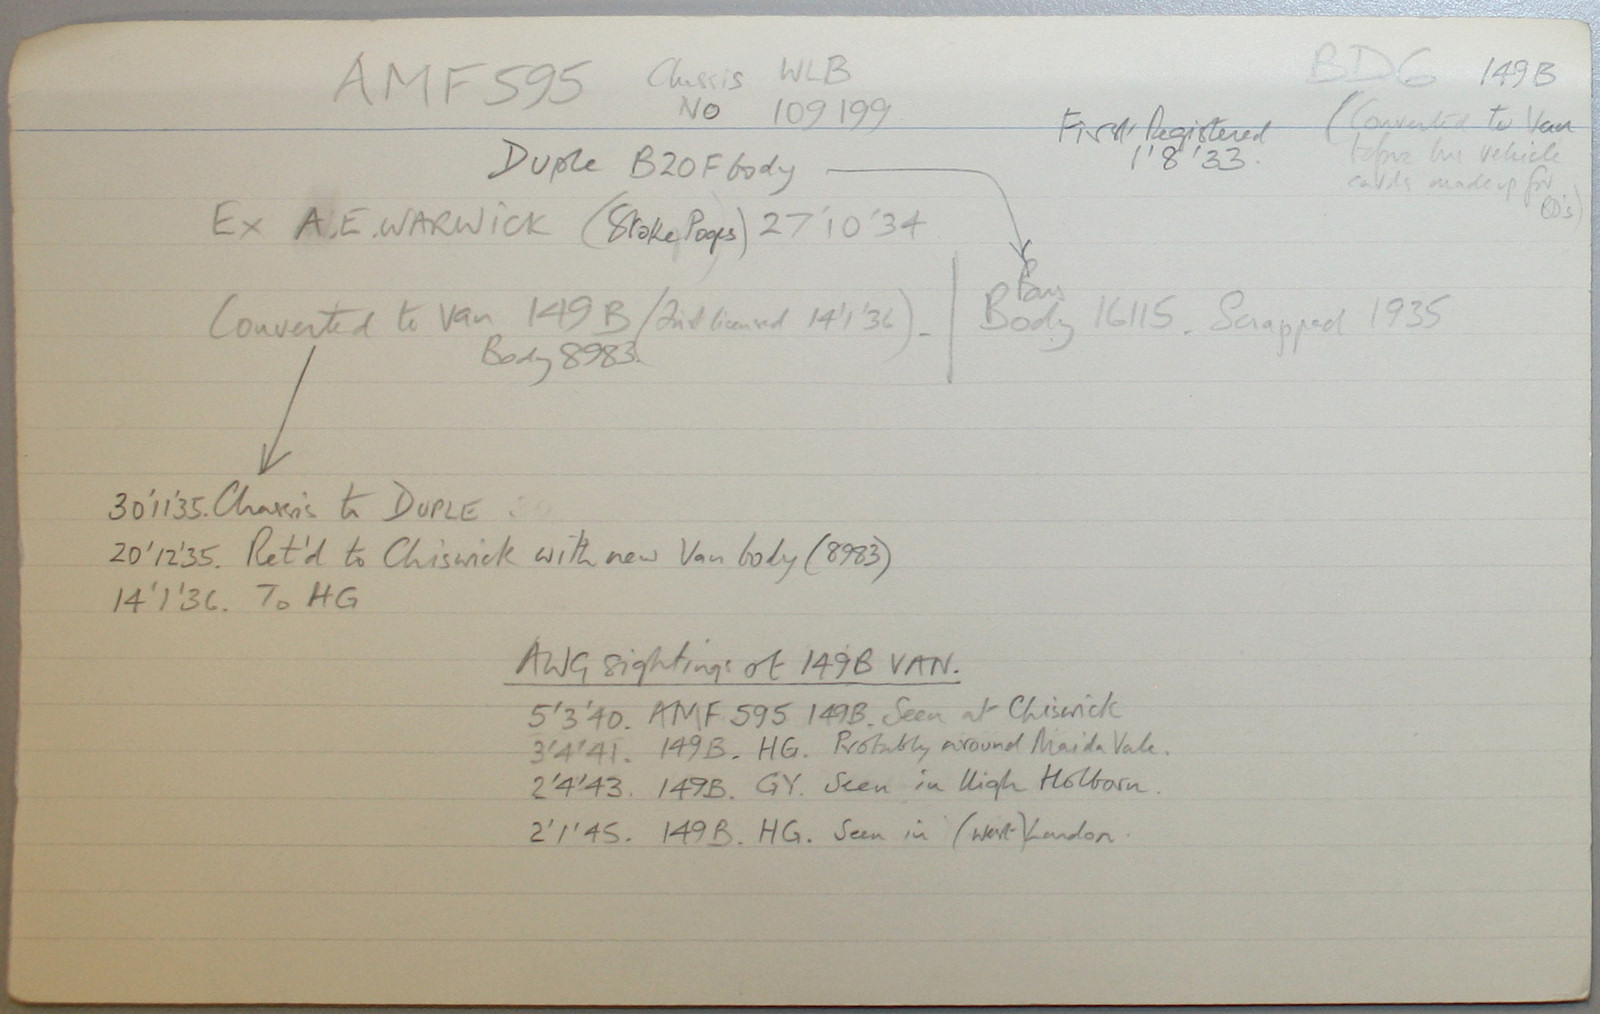 AMF 595 Chassis WLB BD6 149B
No 109199
First Registered (Converted to Van
1'8'33. before bus vehicle
cards made up for
BD's)
Duple B20F body
Ex A.E. WARWICK (Stoke Poges) 27'10'34
Converted to Van 149B (2nd licensed 14'1'36). Bus Body 16115. Scrapped 1935
Body 8983.
30'11'35. Chassis to DUPLE
20'12'35. Ret'd to Chiswick with new Van body (8983)
14'1'36. To HG
AWG sightings of 149B VAN.
5'3'40. AMF 595 149B. Seen at Chiswick
3'4'41. 149B. HG. Probably around Maida Vale.
2'4'43. 149B. GY. Seen in High Holborn.
2'1'45. 149B. HG. Seen in (West) London.